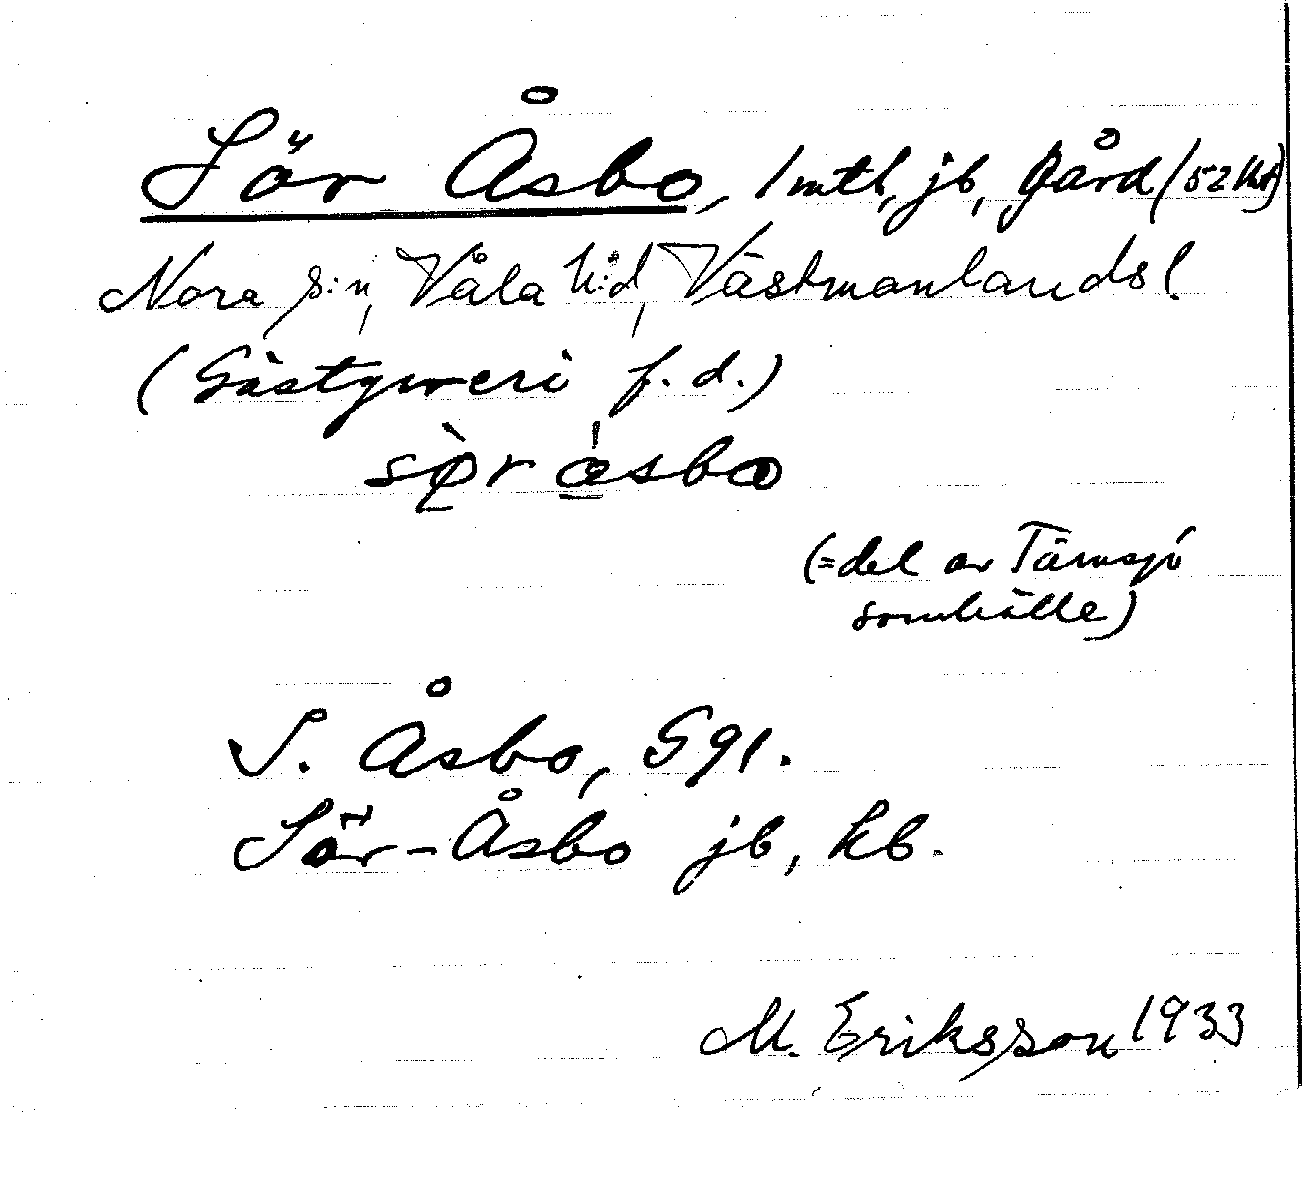 Sör Åsbo, 1 mtl, jb, gård (52
Nora s:n, Våla h:d, Västmanlands l.
(Gästgiveri f. d.)
(=del av Tärnsjö
samhälle)
S. Åsbo, Sgl.
Sör-Åsbo jb, kb.
M. Eriksson 1933